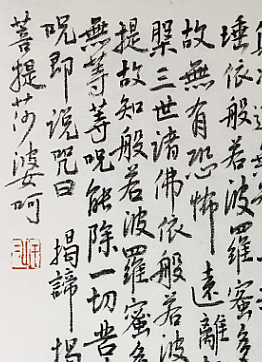 埵依般若波羅蜜多
故無有恐怖遠離
槃三世諸佛依般若波
提故知般若波羅蜜多
無等等呪能除一切苦
呪即说咒曰 揭諦 揭
菩提莎婆呵